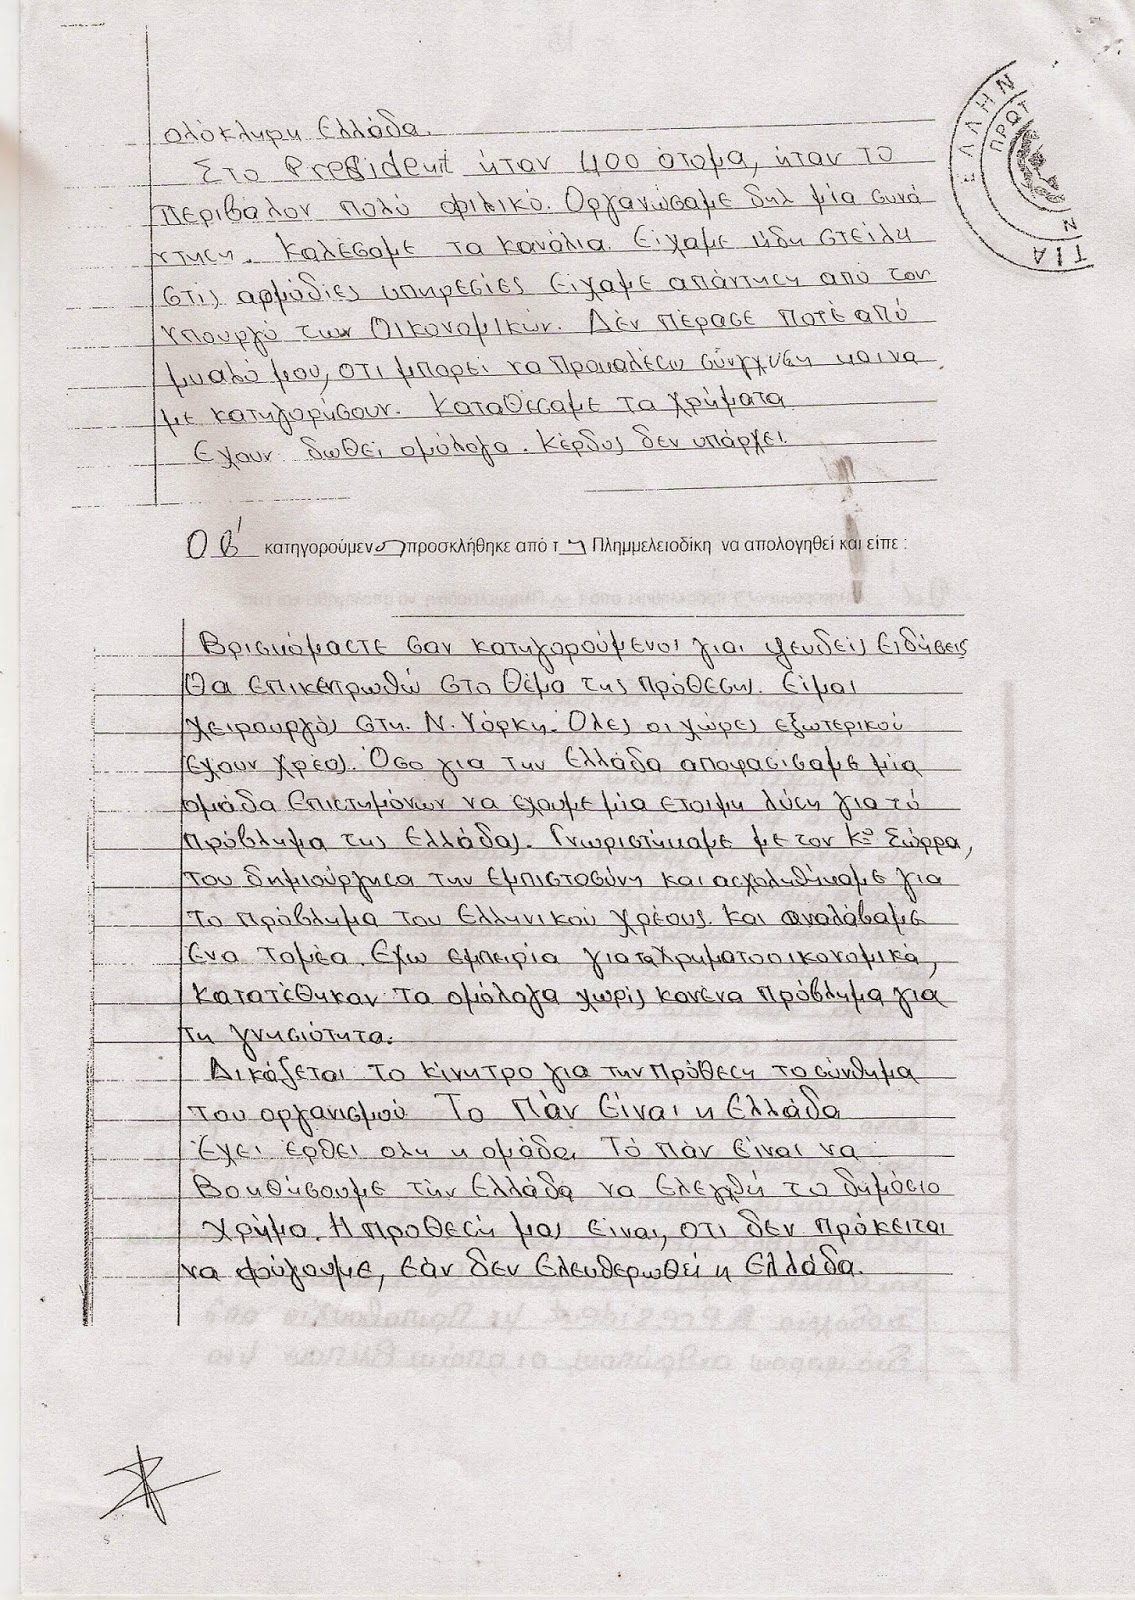 ολόκληρη Ελλάδα.
Στο President ήταν 400 άτομα, ήταν το
περιβάλον πολύ φιλικό. Οργανώσαμε δηλ μία συνά
ντηση. Καλέσαμε τα κανάλια. Είχαμε ήδη στείλη
στις αρμόδιες υπηρεσίες είχαμε απάντηση από τον
Υπουργό των Οικονομικών. Δέν πέρασε ποτέ από
μυαλό μου, οτι μπορεί να προκαλέσω σύνχυση και να
με κατηγορήσουν. Καταθέσαμε τα χρήματα
Εχουν δωθεί ομόλογα. Κέρδος δεν υπάρχει.
Ο β' κατηγορούμενος προσκλήθηκε από τη Πλημμελειοδίκη να απολογηθεί και είπε :
Βρισκόμαστε σαν κατηγορούμενοι για ψευδείς ειδήσεις
Θα επικεντρωθώ στο θέμα της πρόθεσης. Είμαι
χειρουργός στη Ν. Υόρκη. Όλες οι χώρες εξωτερικού
έχουν χρέος. Όσο για την Ελλάδα αποφασίσαμε μία
ομάδα επιστημόνων να έχουμε μία ετοιμη λύση για το
πρόβλημα της Ελλάδας. Γνωριστήκαμε με τον Κο Σώρρα,
του δημιούργησα την εμπιστοσύνη και ασχοληθήκαμε για
το πρόβλημα του Ελληνικού χρέους. Και αναλάβαμε
ένα τομέα. Εχω εμπειρία για τα χρηματοοικονομικά,
κατατέθηκαν τα ομόλογα χωρίς κανένα πρόβλημα για
τη γνησιότητα.
Δικάζεται το κίνητρο για την πρόθεση το σύνθημα
του οργανισμού Το Πάν Είναι η Ελλάδα
Έχει έρθει ολη η ομάδα. Τό πάν είναι να
βοηθήσουμε τήν Ελλάδα να ελεγχθή το δημόσιο
χρήμα. Η προθεσή μας είναι, οτι δεν πρόκειται
να φύγουμε, εάν δεν ελευθερωθεί η Ελλάδα.
ΕΛΛΗΝ
ΤΙΑ
ΠΡΩΤ
Ν